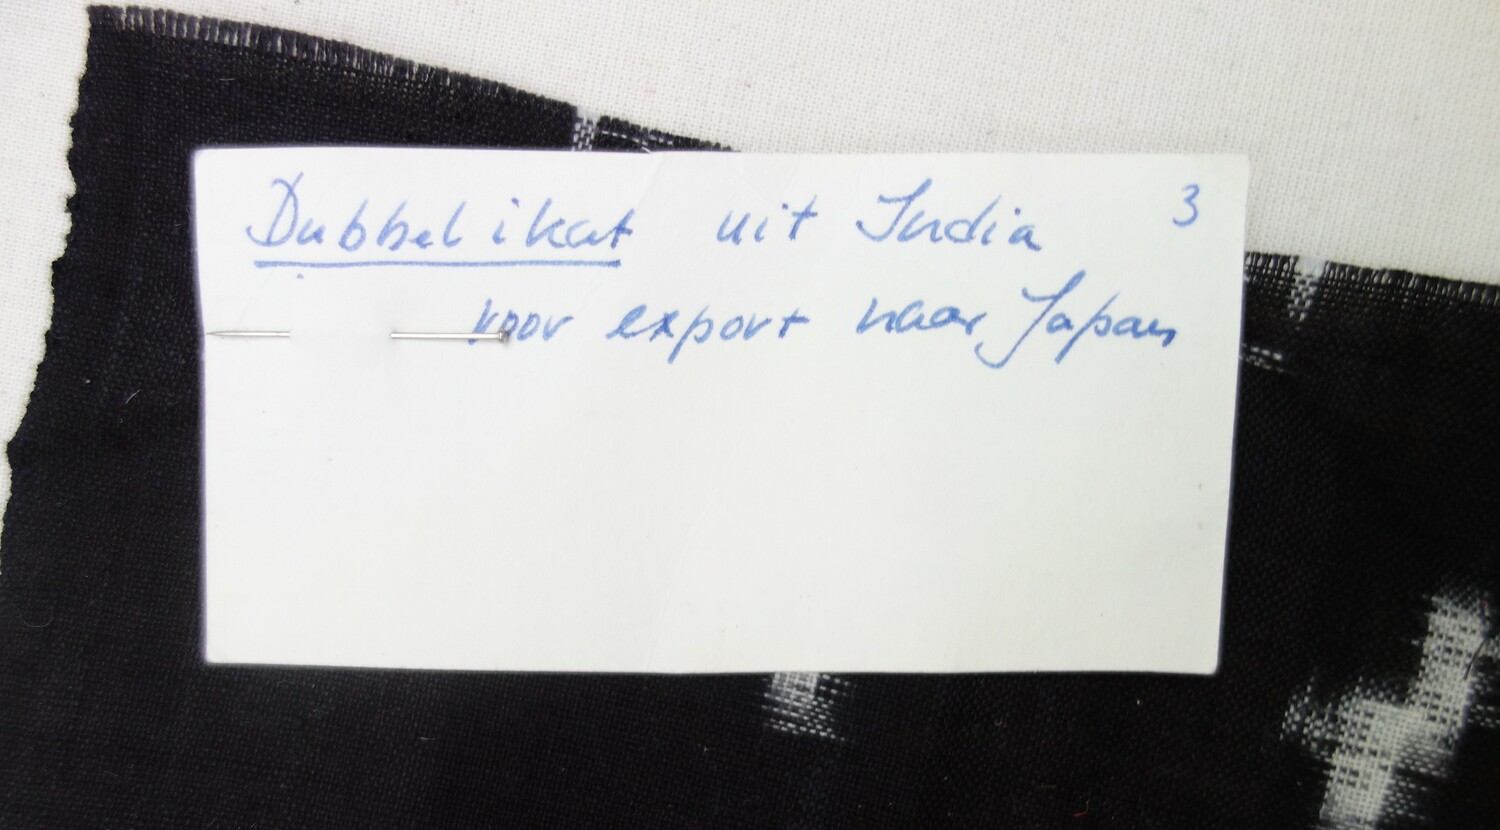 Dubbel ikat uit India 3
voor export naar Japan